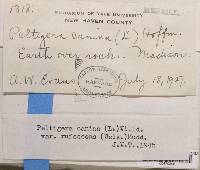 1318.
HERBARIUM OF YALE UNIVERSITY
NEW HAVEN COUNTY
Peltigera canina (L) Hoffm.
Earth over rocks. Madison
A. W. Evans July 18, 1927.
Peltigera canina (L.) Willd.
var. rufescens (Weis.) Mudd.
J.W.T. 1945